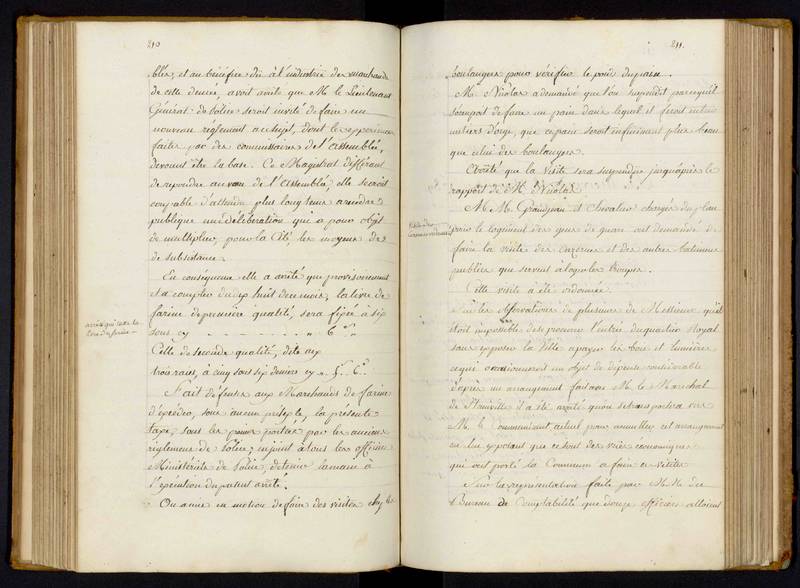 210
blés, et au bénéfice dû à l'industrie des marchands
de cette denrée, avoit arrêté que M. le Lieutenant
Général de Police seroit invité de faire un
nouveau réglement au sujet, dont les expériences
faites par des commissaires de l'assemblée,
devoient être la base. Ce Magistrat différant
de répondre au vœu de l'assemblée, elle seroit
coupable d'attendre plus longtems à rendre
publique une délibération qui a pour objet
de multiplier, pour la Cité, les moyens de
de subsistance.
En conséquence elle a arrêté que provisoirement
et à compter du dix huit de ce mois, la livre de
farine de première qualité, sera fixée à six
sous cy 6 s.
Celle de seconde qualité, dite aux
trois rais, à cinq sous six deniers cy 5. 6.
Fait défenses aux Marchands de farine
d'excéder, sous aucun prétexte, la présente
taxe, sous les peines portées par les anciens
réglemens de Police; enjoint à tous les officiers
Ministériels de Police, de tenir la main à
l'exécution du présent arrêté.
On a mis en motion de faire des visites chez les
211.
boulangers pour vérifier le poids du pain.
M. Nicolas a demandé que l'on suspendit parce qu'il
de faire un pain dans lequel il feroit entrer
un tiers d'orge, que ce pain seroit infiniment plus beau
que celui des boulangers.
Arrêté que la visite sera suspendue jusqu'après le
rapport de M. Nicolas.
M. M. Grandjean et Chevalier chargés du plan
pour le logement des gens de guerre ont demandé de
faire la visite des cazernes et des autres batimens
publics qui servent à loger les troupes.
Cette visite a été ordonnée.
Sur les observations de plusieurs de Messieurs qu'il
étoit impossible de se procurer l'entrée du quartier Royal
sans exposer la Ville à payer les bois et lumières
ce qui occasionneroit un objet de dépense considérable
d'après un arrangement fait avec M. le Marechal
de Stainville il a été arrêté qu'on se transportera vers
M. le Commandant actuel pour annuller cet arrangement
en lui exposant que ce sont des vues économiques
qui ont porté la Commune à faire ces visites.
Sur la représentation faite par M. M. du
Bureau de Comptabilité que douze officiers alloient